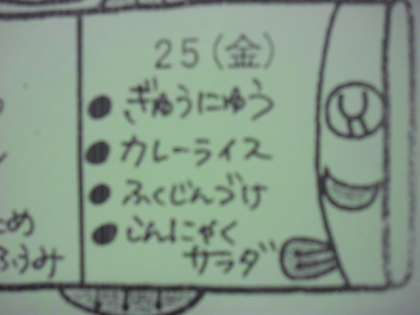 25(金)
ぎゅうにゅう
カレーライス
ふくじんづけ
こんにゃく
サラダ
め
ふうみ